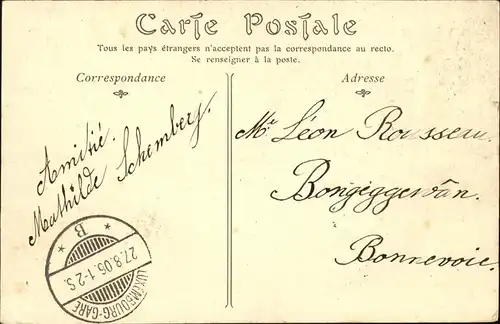 Carte Postale
Tous les pays étrangers n'acceptent pas la correspondance au recto.
Se renseigner à la poste.
Correspondance
Adresse
Amitié.
Mathilde Schomberg.
Mr Léon Rousseau.
Bonnevoie.
B
27.8.06.1-2S.
LUXEMBOURG-GARE